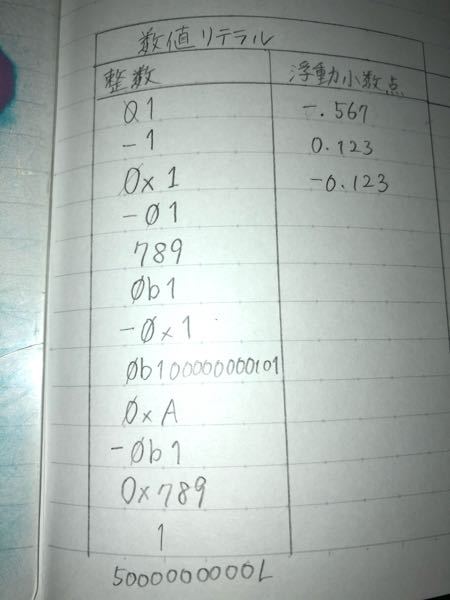 数値リテラル
整数 浮動小数点
01 -.567
-1 0.123
0x1 -0.123
-01
789
0b1
-0x1
0b100000000101
0xA
-0b1
0x789
1
5000000000L